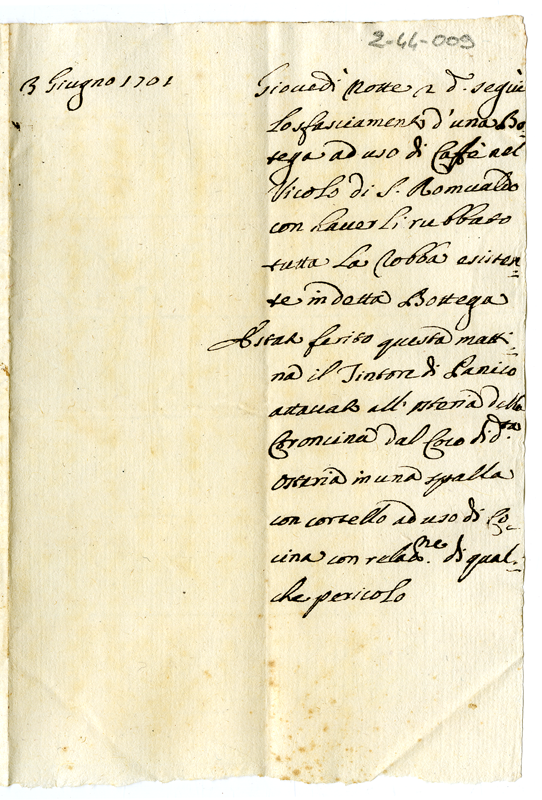 2-44-009
3 Giugno 1701
Giovedì Notte 2 d.º seguì
lo sfasciamento d'una Bo
tega ad uso di Caffè nel
Vicolo di S. Romualdo
con haverli rubbato
tutta la Robba esisten
te in detta Bottega
È stato ferito questa matti
na il Tintore di Panico
attaccato all'osteria della
Coroncina dal Coco di d.ta
Osteria in una spalla
con cortello ad uso di Co
cina con relat.ne di qual
che pericolo